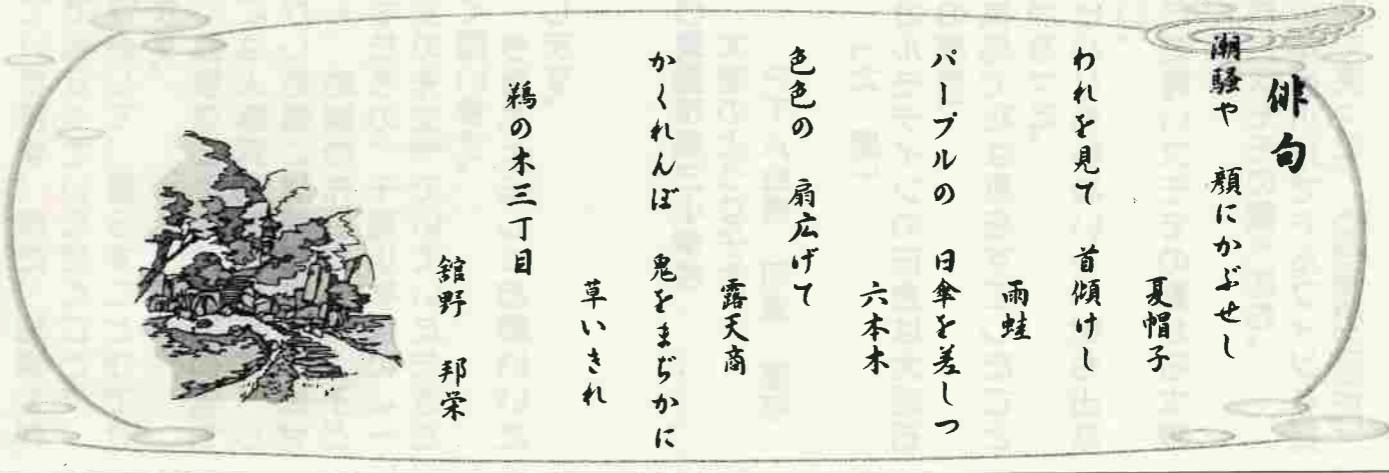 俳句
潮騒や 顔にかぶせし
夏帽子
われを見て 首傾けし
雨蛙
パープルの 日傘を差しつ
六本木
色色の 扇広げて
露天商
かくれんぼ 鬼をまぢかに
草いきれ
鵜の木三丁目
舘野 邦栄